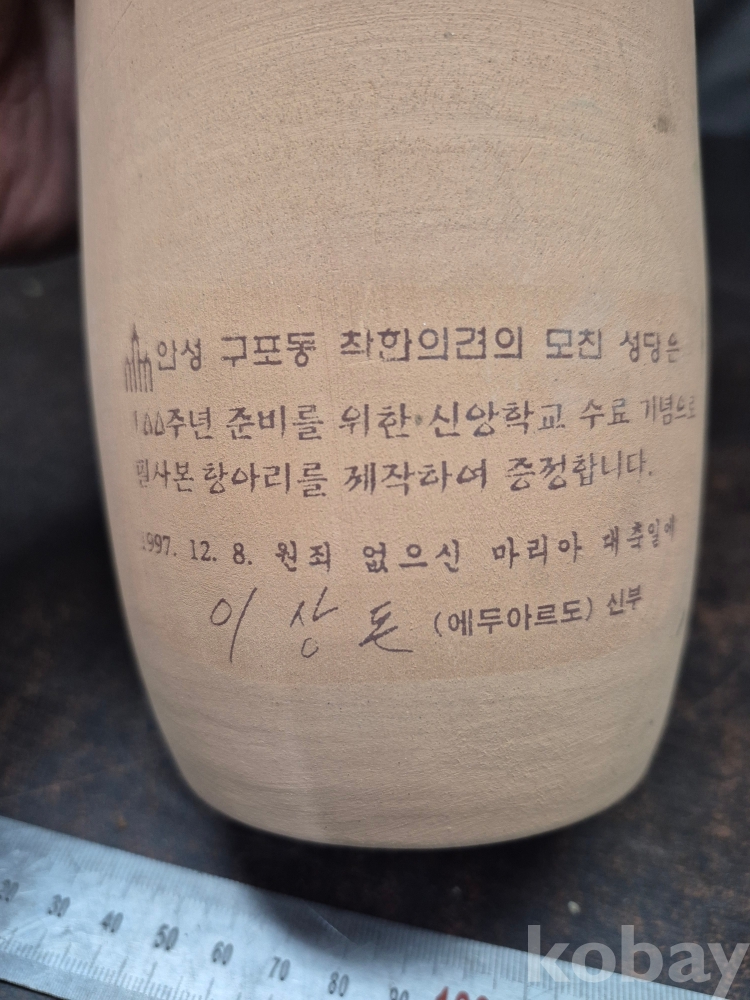 안성 구포동 착한의견의 모친 성당은
100주년 준비를 위한 신앙학교 수료 기념으로
필사본 항아리를 제작하여 증정합니다.
1997. 12. 8. 원죄 없으신 마리아 대축일에
이상돈 (에두아르도) 신부
20 30 40 50 60 70 80 90 100
kobay